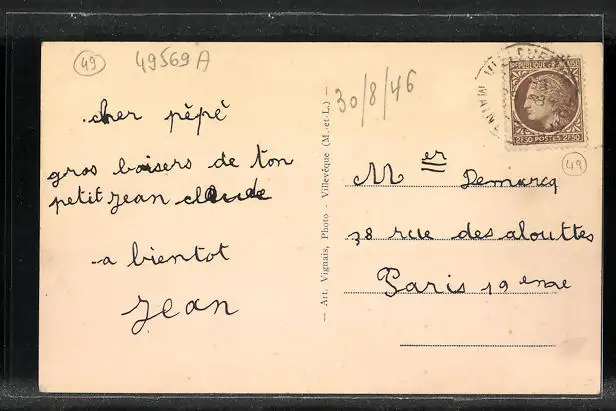 49
49569A
cher pépé
gros baisers de ton
petit jean claude
a bientot
Jean
30/8/46
— Art. Vignais, Photo - Villevêque (M.-et-L.) —
2F50 POSTES 2F50
49
Mer Demarcq
38 rue des alouttes
Paris 19 eme